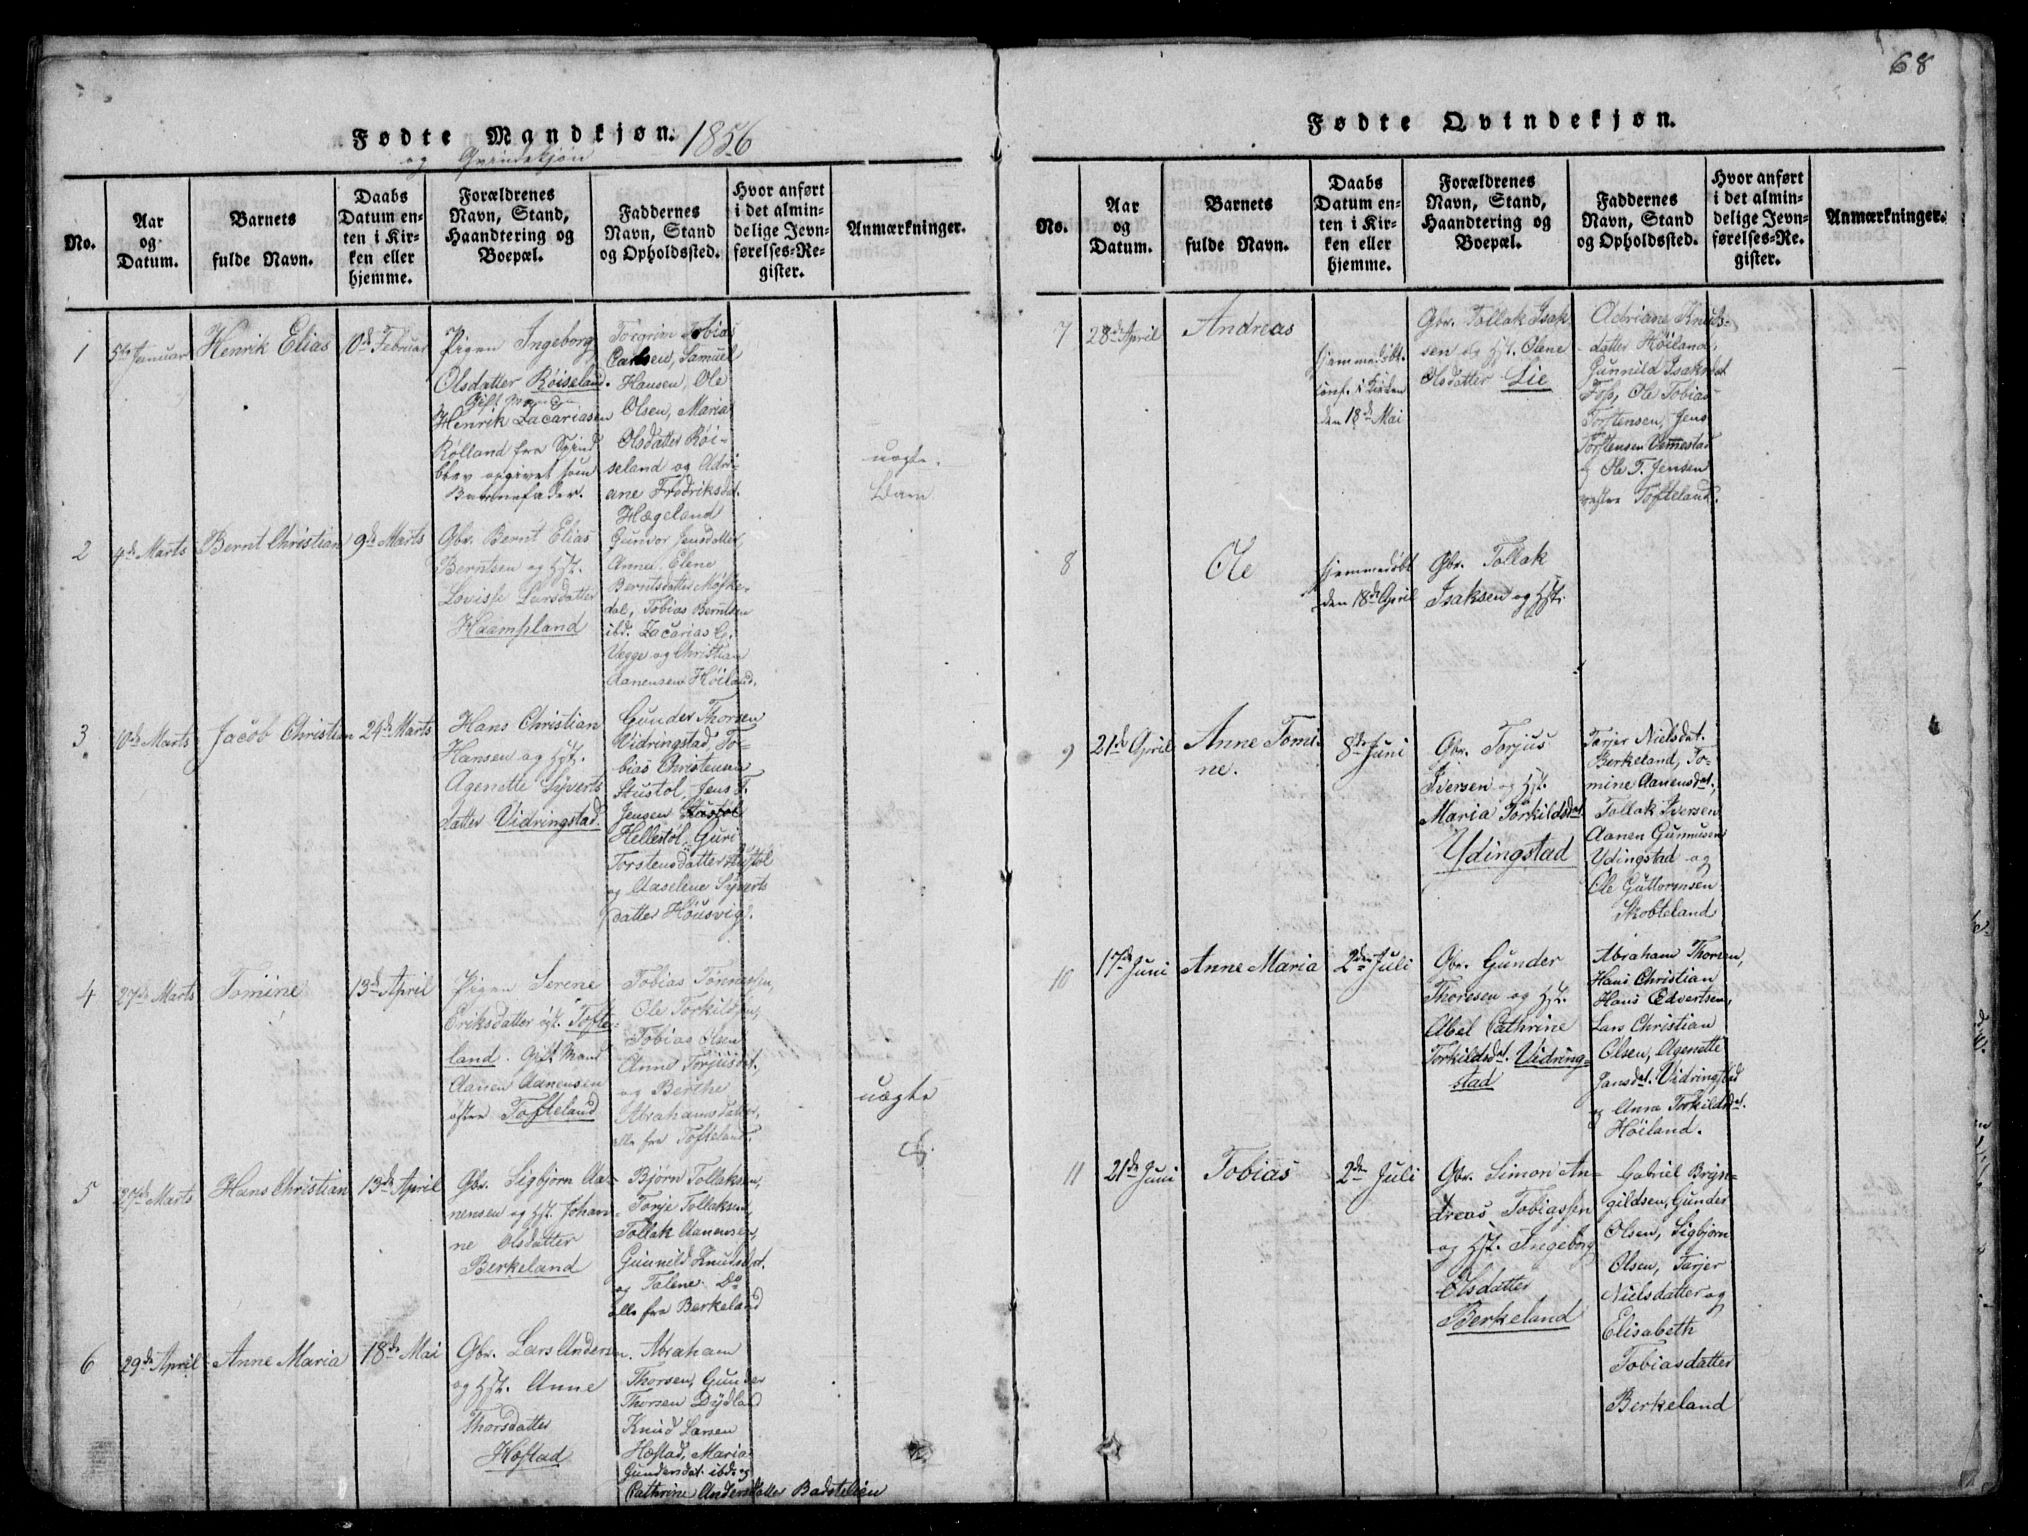 68
Fødte Mandkjøn. 1856
og Qvindekjøn
No.
Aar
og
Datum.
Barnets
fulde Navn.
Daabs
Datum en-
ten i Kir-
ken eller
hjemme.
Forældrenes
Navn, Stand,
Haandtering og
Boepæl.
Faddernes
Navn, Stand
og Opholdssted.
Hvor anført
i det almin-
delige Jevn-
førelses-Re-
gister.
Anmærkninger.
1
5te Januar
Henrik Elias
Februar
Pigen Ingeborg
Olsdatter Røiseland.
Gift Mand
Henrik Zacariasen
Rölland fra Spind
blev opgivet som
Barnefader.
Torgrim Tobias
Carlsen, Samuel
Hansen, Ole
Olsen, Maria
Olsdatter Röi-
seland og Adri-
ane Fredriksdat.
Hægeland
uægte
Barn
2
4de Marts
Bernt Christian
9de Marts
Gbr. Bernt Elias
Berntsen og Hst.
Lovisse Larsdatter
Haampland
Gunvor Jensdatter,
Anne Elene
Berntsdatter Møske-
dal, Tobias Berntsen
ibd. Zacarias
Vegge og Christian
Aanensen Höiland.
3
10de Marts
Jacob Christian
24de Marts
Hans Christian
Hansen og Hst.
Agenette Syverts
datter Vidringstad.
Gunder Thorsen
Vidringstad, To-
bias Christensen
Stustøl, Jens T.
Jensen
Hellestøl, Guri
Torstensdatter Stustøl
og Aaselene Syverts
datter Höusvig.
4
27de Marts
Tomine
13de April
Pigen Serene
Eriksdatter øst. Tofte-
land. Gift Mand
Aanen Aanensen
østre Tofteland
Tobias Tønnessen,
Ole Torkildsen,
Tobias Olsen
Anne Torjusdat.
og Berthe
Abrahamsdatter,
alle fra Tofteland.
uægte
B.
5
27de Marts
Hans Christian
13de April
Gbr. Sigbjørn Aa-
nensen og Hst. Johan-
ne Olsdatter
Berkeland
Bjørn Tollaksen,
Torje Tollaksen,
Tollak Aanensen,
Gunneld Knudsdat.
og Talene Do
alle fra Berkeland
6
29de April
Anne Maria
18de Mai
Gbr. Lars Andersen
og Hst. Anne
Thorsdatter
Høstad
Abraham
Thorsen, Gunder
Thorsen Dydland
Knud Larsen
Høstad, Maria
Gundersdat. ibd. og
Cathrine Andersdatter Badstelien
Fødte Qvindekjøn.
No.
Aar
og
Datum.
Barnets
fulde Navn.
Daabs
Datum en-
ten i Kir-
ken eller
hjemme.
Forældrenes
Navn, Stand,
Haandtering og
Boepæl.
Faddernes
Navn, Stand
og Opholdssted.
Hvor anført
i det almin-
delige Jevn-
førelses-Re-
gister.
Anmærkninger.
7
28de April
Andreas
hjemmedøbt.
conf. i Kirken
den 18de Mai
Gbr. Tollak Isak
sen og Hst. Olene
Olsdatter Lie
Adriane Knuts-
datter Höiland,
Gunnild Isaksdat
Foss, Ole Tobias
Torstensen, Jens
Torstensen Vemmestad
og Ole T. Jensen
vestre Tofteland.
8
Ole
hjemmedøbt
den 18de April
Gbr. Tollak
Isaksen og Hst.
9
21de April
Anne Tomi-
ne.
8de Juni
Gbr. Torjus
Iversen og Hst.
Maria Torkildsdat
Ydingstad
Tarjer Nielsdat.
Berkeland, To-
mine Aanensdat.,
Tollak Iversen
Aanen Gunnusen
Ydingstad og
Ole Guttormsen
Skobteland
10
17de Juni
Anne Maria
2den Juli
Gbr. Gunder
Thoresen og Hst.
Abel Cathrine
Torkildsdat. Vidring-
stad
Abraham Thorsen,
Hans Christian
Hans Edvertsen,
Lars Christian
Olsen, Agenette
Jansdat. Vidringstad
og Anna Torkildsdat.
Höiland.
11
21de Juni
Tobias
2den Juli
Gbr. Simon An-
dreas Tobiassen
og Hst. Ingeborg
Olsdatter
Berkeland
Gabriel Bryn-
gildsen, Gunder
Olsen, Sigbjørn
Olsen, Tarjer
Nielsdatter og
Elisabeth
Tobiasdatter
Berkeland